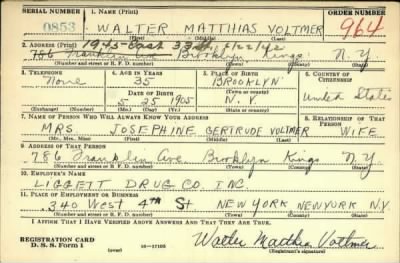 SERIAL NUMBER 1. NAME (Print) ORDER NUMBER
0853 WALTER MATTHIAS VOLTMER 964
(First) (Middle) (Last)
2. ADDRESS (Print) 1945-East 33d 5/22/42
786 Franklin Ave Brooklyn Kings N.Y
(Number and street or R. F. D. number) (Town) (County) (State)
3. TELEPHONE 4. AGE IN YEARS 5. PLACE OF BIRTH 6. COUNTRY OF CITIZENSHIP
None 35 BROOKLYN
DATE OF BIRTH (Town or county)
5 25 1905 N.Y. United States
(Exchange) (Number) (Mo.) (Day) (Yr.) (State or country)
7. NAME OF PERSON WHO WILL ALWAYS KNOW YOUR ADDRESS 8. RELATIONSHIP OF THAT PERSON
MRS JOSEPHINE GERTRUDE VOLTMER WIFE
(Mr., Mrs., Miss) (First) (Middle) (Last)
9. ADDRESS OF THAT PERSON
786 Franklin Ave Brooklyn Kings N.Y
(Number and street or R. F. D. number) (Town) (County) (State)
10. EMPLOYER'S NAME
LIGGETT DRUG CO. INC.
11. PLACE OF EMPLOYMENT OR BUSINESS
340 West 4TH St NEW YORK NEWYORK N.Y.
(Number and street or R. F. D. number) (Town) (County) (State)
I AFFIRM THAT I HAVE VERIFIED ABOVE ANSWERS AND THAT THEY ARE TRUE.
REGISTRATION CARD
D. S. S. FORM 1 (over) 16-17105 Walter Matthias Voltmer
(Registrant's signature)